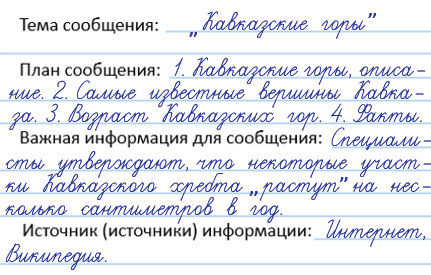 Тема сообщения: „Кавказские горы”
План сообщения: 1. Кавказские горы, описа-
ние. 2. Самые известные вершины Кавка-
за. 3. Возраст Кавказских гор. 4. Факты.
Важная информация для сообщения: Специали-
сты утверждают, что некоторые участ-
ки Кавказского хребта „растут” на нес-
колько сантиметров в год.
Источник (источники) информации: Интернет,
Википедия.